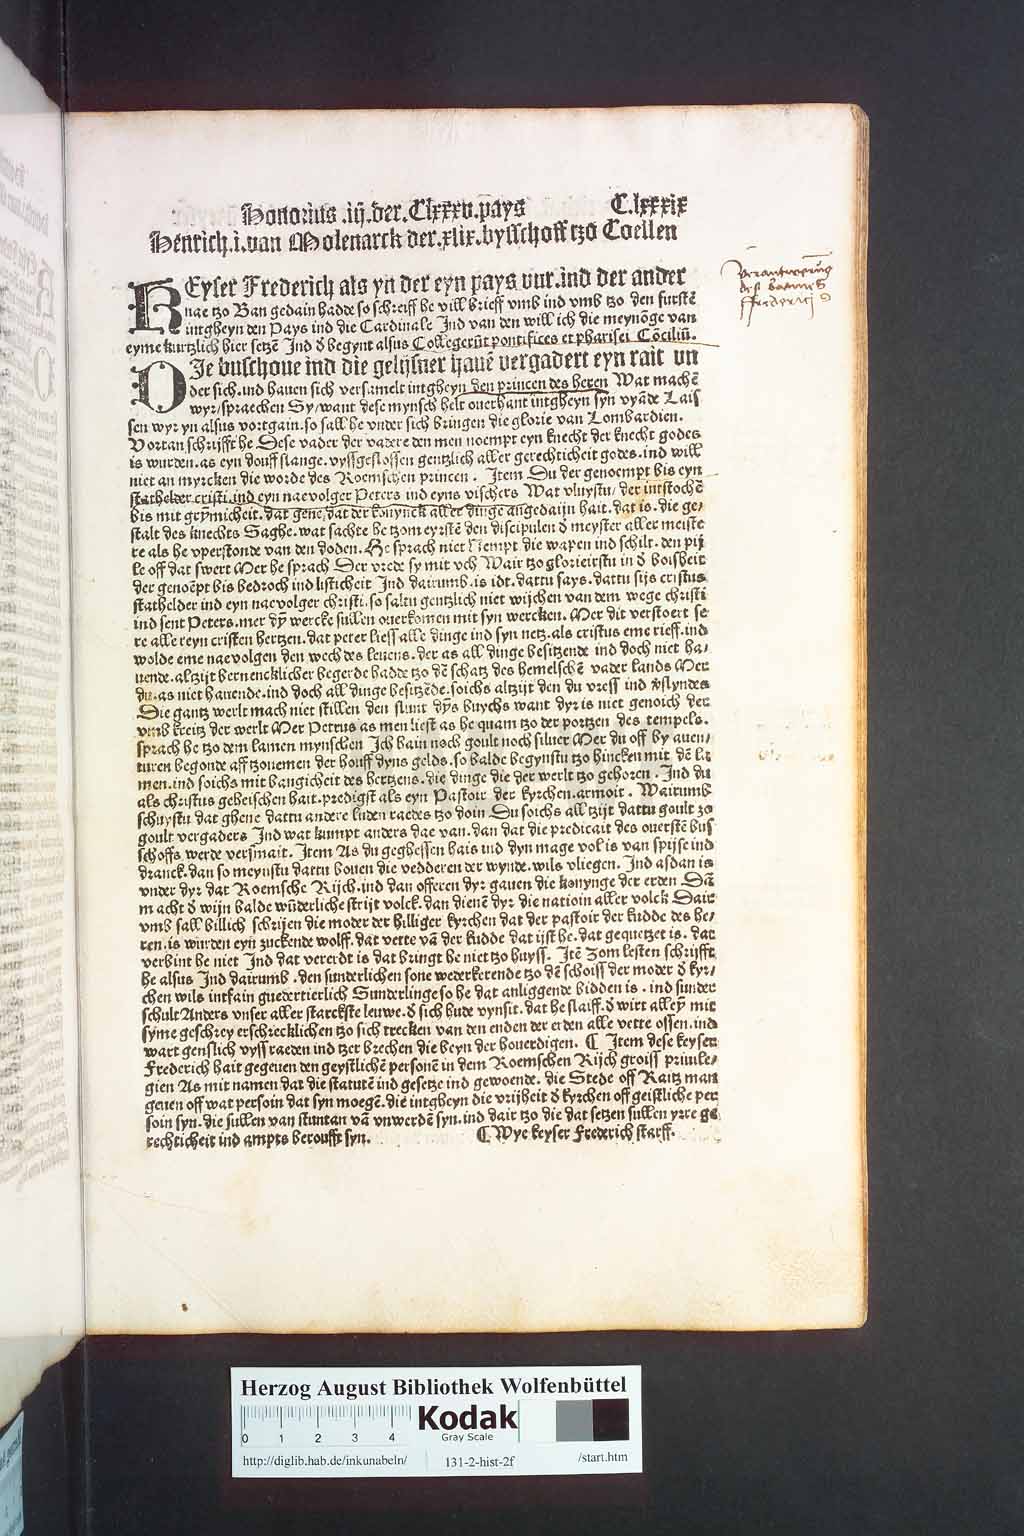 Honorius .iij. der. Clxxxv. pays C.lxxxix
Henrich .i. van Molenarck der .xlix. bysschoff tzo Coellen
KEyser Frederich als yn der eyn pays vur .ind der ander
nae tzo Ban gedain hadde so schreiff he vill brieff vmb ind vmb tzo den furstē
intgheyn den Pays ind die Cardinale Ind van den will ich die meynōge van
eyme kurtzlich hier setzē Ind d begynt alsus Collegerūt pontifices et pharisei Cōciliū.
DIe buschoue ind die gelijsner hauē vergadert eyn rait vn
der sich .ind hauen sich versamelt intgheyn den princen des heren Wat machē
wyr/sprachen Sy/want dese mynsch helt ouerhant intgheyn syn vyāde Lais
sen wyr yn alsus vortgain .so sall he vnder sich bringen die glorie van Lombardien.
Vortan schrijfft he Dese vader der vadere den men noempt eyn knecht der knecht godes
is wurden .as eyn douff slange .vyssgeslossen gentzlich aller gerechticheit godes .ind will
niet an myrcken die worde des Roemschen princen . Item Du der genoempt bis eyn
stathelder cristi .ind eyn naevolger Peters ind eyns vischers Wat vluystu/ der intstochē
bis mit grȳmicheit .dat gene .dat der konynck aller dinge angedaijn hait .dat is .die ge/
stalt des knechts Saghe .wat sachte he tzom eyrstē den discipulen d meyster aller meiste
re als he vperstonde van den doden. He sprach niet Nempt die wapen ind schilt .den pij
le off dat swert Mer he sprach Der vrede sy mit vch Wair tzo glorieirstu in d boisheit
der genoēpt bis bedroch ind listicheit Ind dairumb .is idt .dattu says .dattu sijs cristus
stathelder ind eyn naevolger christi .so saltu gentzlich niet wijchen van dem wege christi
ind sent Peters .mer dȳ wercke sullen ouerkomen mit syn wercken. Mer dit verstoert se
re alle reyn cristen hertzen .dat peter liess alle dinge ind syn netz .als cristus eme rieff .ind
wolde eme naevolgen den wech des leuens .der as all dinge besitzende ind doch niet ha/
uende .altzijt herneneklicher begerde hadde tzo dē schatz des hemelschē vader lands Mer
du .as niet hauende .ind doch all dinge besitzēde .soichs altzijt den du vress ind vslyndes
Die gantz werlt mach niet stillen den slunt dȳs buychs want dyr is niet genoich der
vmb kreitz der werlt Mer Petrus as men liest as he quam tzo der portzen des tempels.
sprach he tzo dem lamen mynschen Ich hain noch goult noch siluer Mer du off by auen/
turen begonde aff tzonemen der houff dyns gelds .so balde begynstu tzo hincken mit dē la
men .ind soichs mit bangicheit des hertzens .die dinge die der werlt tzo gehoren . Ind du
als christus geheischen hait .predigst als eyn Pastoir der kyrchen .armoit . Wairumb
schuystu dat ghene dattu andere luden raedes tzo doin Du soichs all tzijt dattu goult zo
goult vergaders Ind wat kumpt anders dae van .dan dat die predicait des ouerstē bus
schoffs werde versmait. Item As du geghessen hais ind dyn mage vol is van spijse ind
dranck .dan so meynstu dattu bouen die vedderen der wynde .wils vliegen. Ind asdan is
vnder dyr dat Roemsche Rijch .ind dan offeren dyr gauen die konynge der erden Dā
m acht d wijn balde wūderliche strijt volck .dan dienē dyr die natioin aller volck Dair
vmb sall billich schrijen die moder der hilliger kyrchen dat der pastoir der kudde des he/
ren .is wurden eyn zuckende wolff .dat vette vā der kudde dat ijst he .dat gequetzet is . dat
verbint he niet Ind dat vererdt is dat bringt he niet tzo huyss. Itē Zom lesten schrijfft
he alsus Ind dairumb .den sunderlichen sone wederkerende tzo dē schoiss der moder d kyr/
chen wils intfain guedertierlich Sunderlinge so he dat anliggende bidden is . ind sunder
schult Anders vnser aller starckste leuwe .d sich hude vynsit .dat he slaiff .d wirt alleȳ mit
syme geschrey erschrecklichen tzo sich trecken van den enden der erden alle vette ossen .ind
wart genslich vyss raeden ind tzer brechen die heyn der houerdigen. ¶ Item dese keyser
Frederich hait gegeuen den geystlichē personē in dem Roemschen Rijch groiss priuile/
gien As mit namen dat die statutē ind gesetze ind gewoende. die Stede off Raitz man
geuen off wat persoin dat syn moegē .die intgheyn die vrijheit d kyrchen off geistliche per
soin syn .die sullen van stuntan vā vnwerdē syn .ind dair tzo die dat setzen sullen yrre ge
rechticheit ind ampts berouffr syn. ¶ Wye keyser Frederich starff.
verantwerūg
des
Frederici
Herzog August Bibliothek Wolfenbüttel
0 1 2 3 4 Kodak
Gray Scale
http://diglib.hab.de/inkunabeln/ 131-2-hist-2f /start.htm